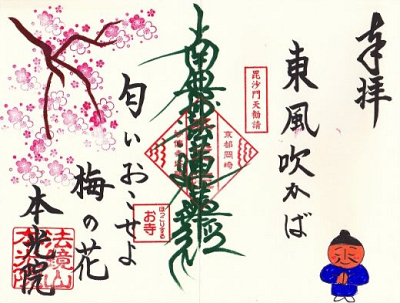 奉拝
東風吹かば
毘沙門天勧請
南無妙法蓮華経
京都岡崎
匂いおこせよ
ほっこりする
お寺
梅の花
本光院
法鏡山